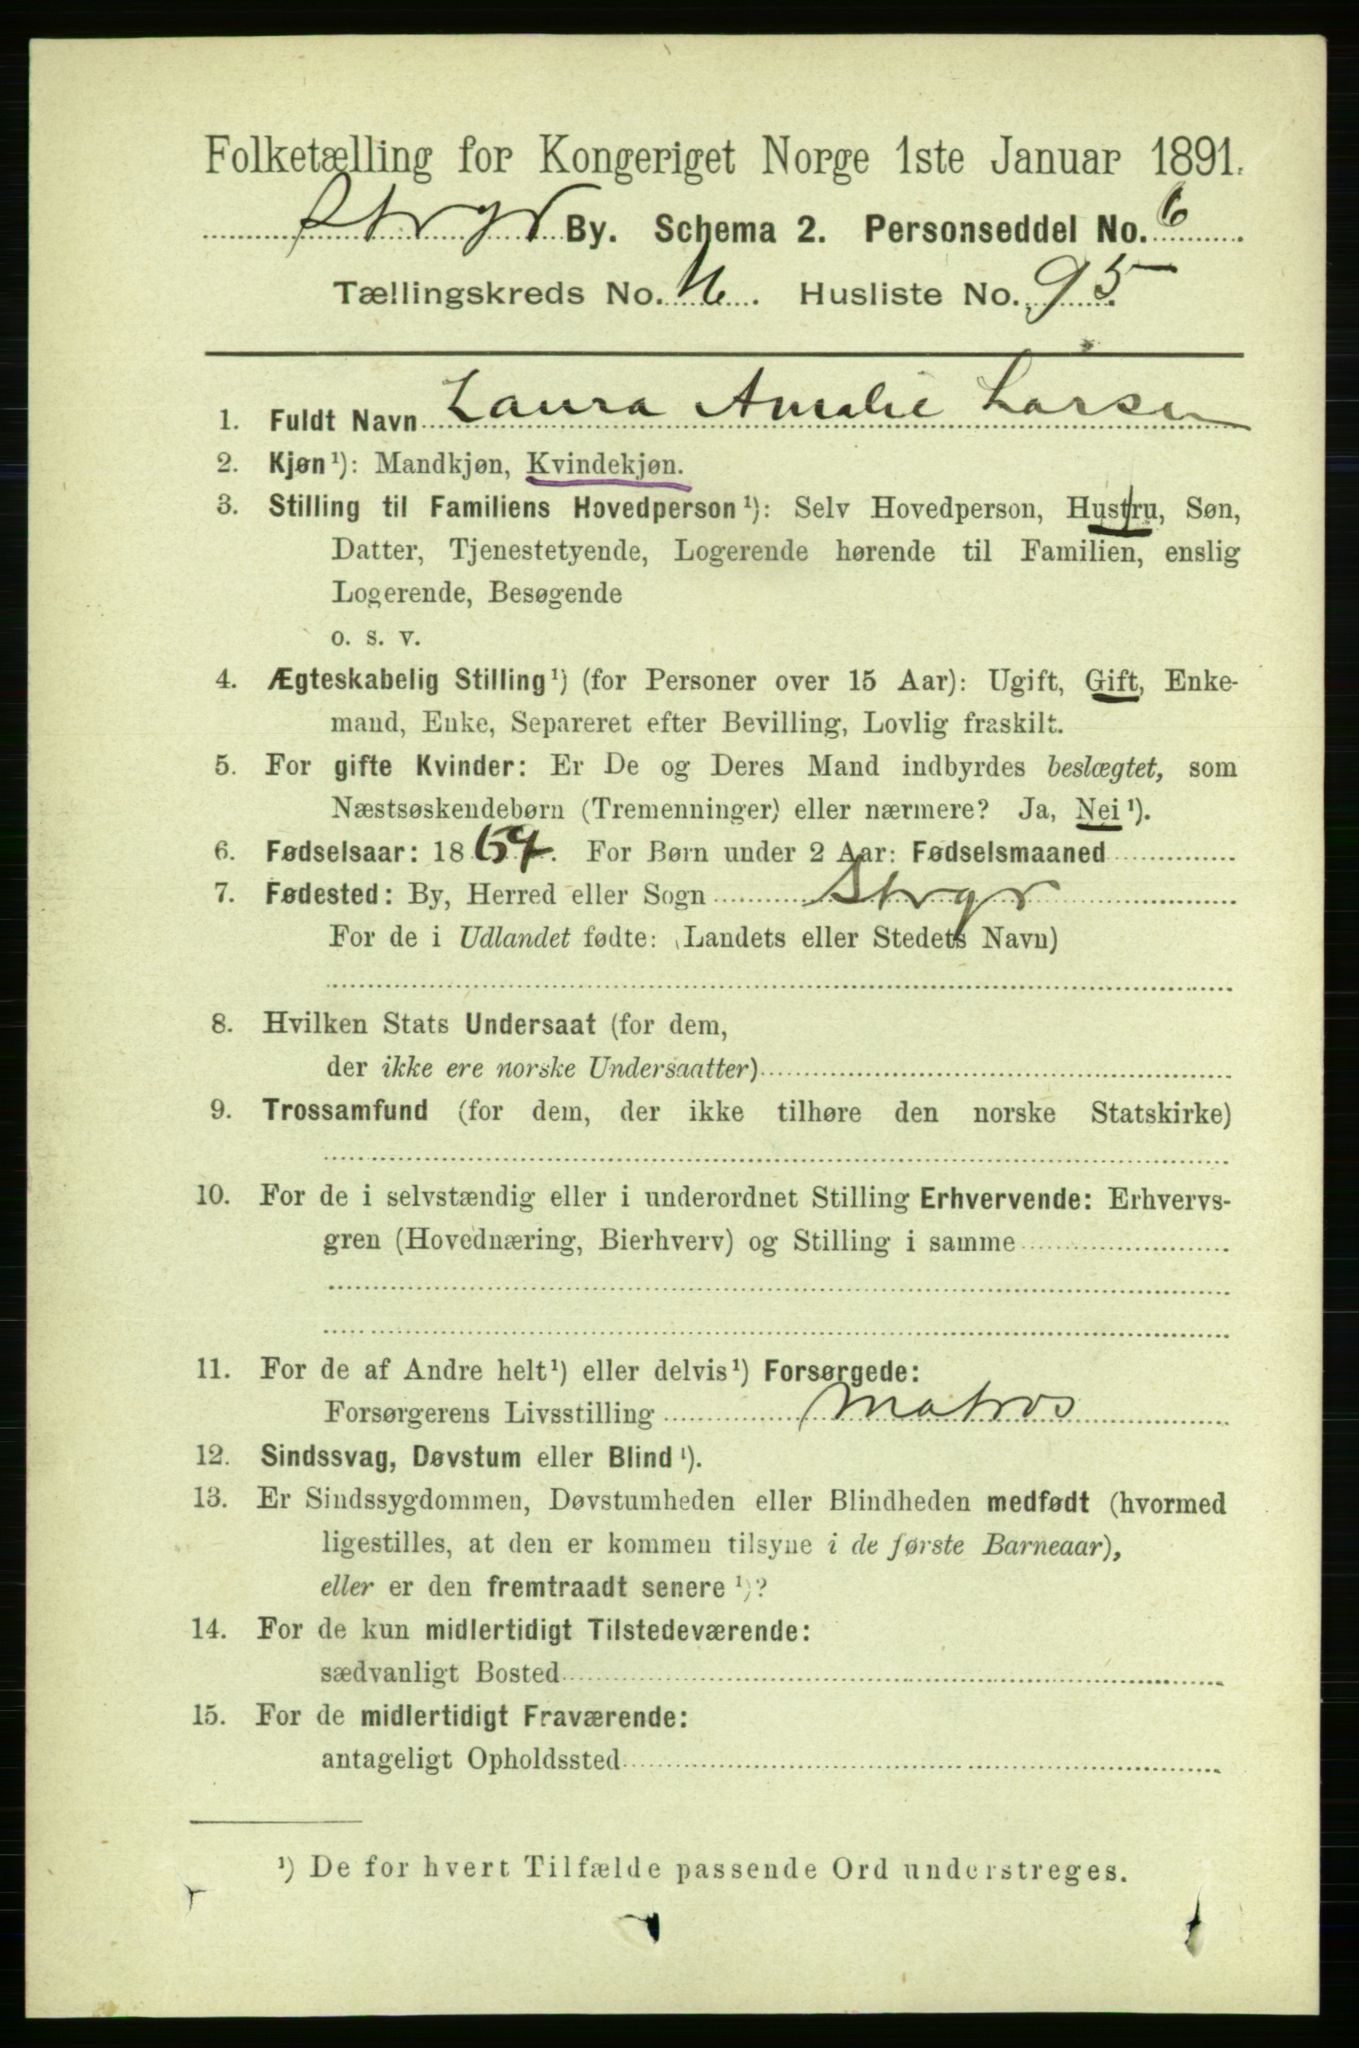 Folketælling for Kongeriget Norge 1ste Januar 1891.
By. Schema 2. Personseddel No. 6
Tællingskreds No. Husliste No. 95
1. Fuldt Navn Laura Amalie Larsen
2. Kjøn¹): Mandkjøn, Kvindekjøn.
3. Stilling til Familiens Hovedperson¹): Selv Hovedperson, Hustru, Søn,
Datter, Tjenestetyende, Logerende hørende til Familien, enslig
Logerende, Besøgende
o. s. v.
4. Ægteskabelig Stilling¹) (for Personer over 15 Aar): Ugift, Gift, Enke-
mand, Enke, Separeret efter Bevilling, Lovlig fraskilt.
5. For gifte Kvinder: Er De og Deres Mand indbyrdes beslægtet, som
Næstsøskendebørn (Tremenninger) eller nærmere? Ja, Nei¹).
6. Fødselsaar: 18 . For Børn under 2 Aar: Fødselsmaaned
7. Fødested: By, Herred eller Sogn
For de i Udlandet fødte: (Landets eller Stedets Navn)
8. Hvilken Stats Undersaat (for dem,
der ikke ere norske Undersaatter)
9. Trossamfund (for dem, der ikke tilhøre den norske Statskirke)
10. For de i selvstændig eller i underordnet Stilling Erhvervende: Erhvervs-
gren (Hovednæring, Bierhverv) og Stilling i samme
11. For de af Andre helt¹) eller delvis¹) Forsørgede:
Forsørgerens Livsstilling Matros
12. Sindssvag, Døvstum eller Blind¹).
13. Er Sindssygdommen, Døvstumheden eller Blindheden medfødt (hvormed
ligestilles, at den er kommen tilsyne i de første Barneaar),
eller er den fremtraadt senere¹)?
14. For de kun midlertidigt Tilstedeværende:
sædvanligt Bosted
15. For de midlertidigt Fraværende:
antageligt Opholdssted
¹) De for hvert Tilfælde passende Ord understreges.